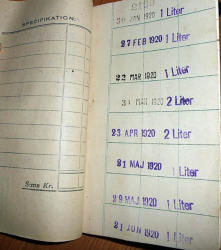 SPECIFIKATION:
Sᴜma Kr.
30 JAN 1920 1 Liter
27 FEB 1920 1 Liter
22 MAR 1920 1 Liter
31 MAR 1920 2 Liter
23 APR 1920 2 Liter
21 MAJ 1920 1 Liter
29 MAJ 1920 1 Liter
21 JUN 1920 1 Liter